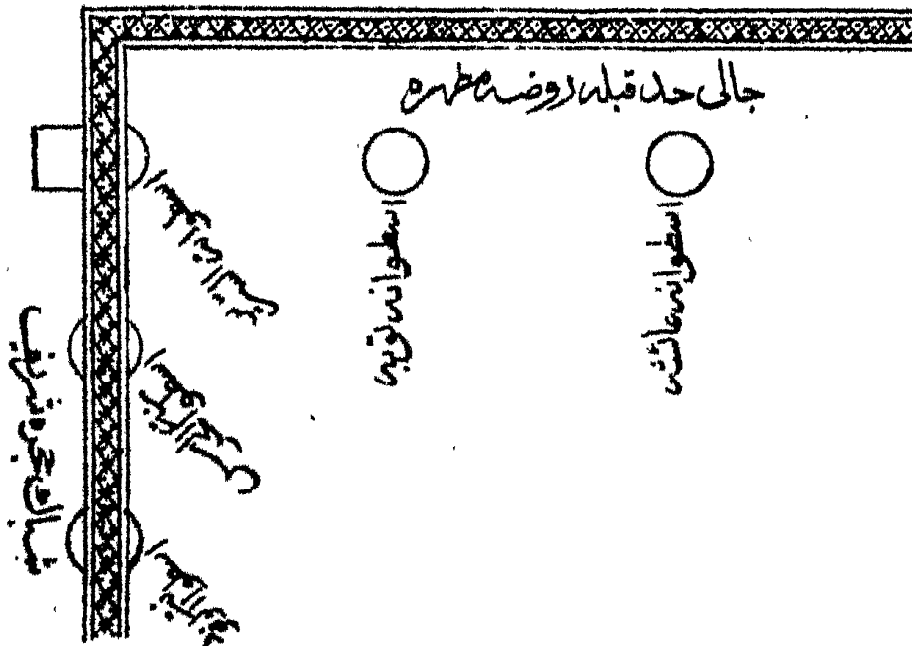 جالی حد قبلہ روضہ مطہرہ
اسطوانہ عائشہ
اسطوانہ توبہ
اسطوانہ السریر
اسطوانہ الحرس
اسطوانہ الوفود
شباک حجرہ شریف